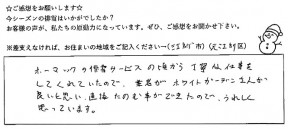 ☆ご感想をお願いします☆
今シーズンの排雪はいかがでしたか?
お客様の声が、私たちの原動力になっています。ぜひ、ご感想をお聞かせ下さい。
※差支えなければ、お住まいの地域をご記入ください→( 市)( 区)
ホーマックの排雪サービスの頃から丁寧な仕事を
してくれていたので、業者がホワイトガーデンさんが
良いと思い、直接たのむ事ができたので、うれしく
思っています。